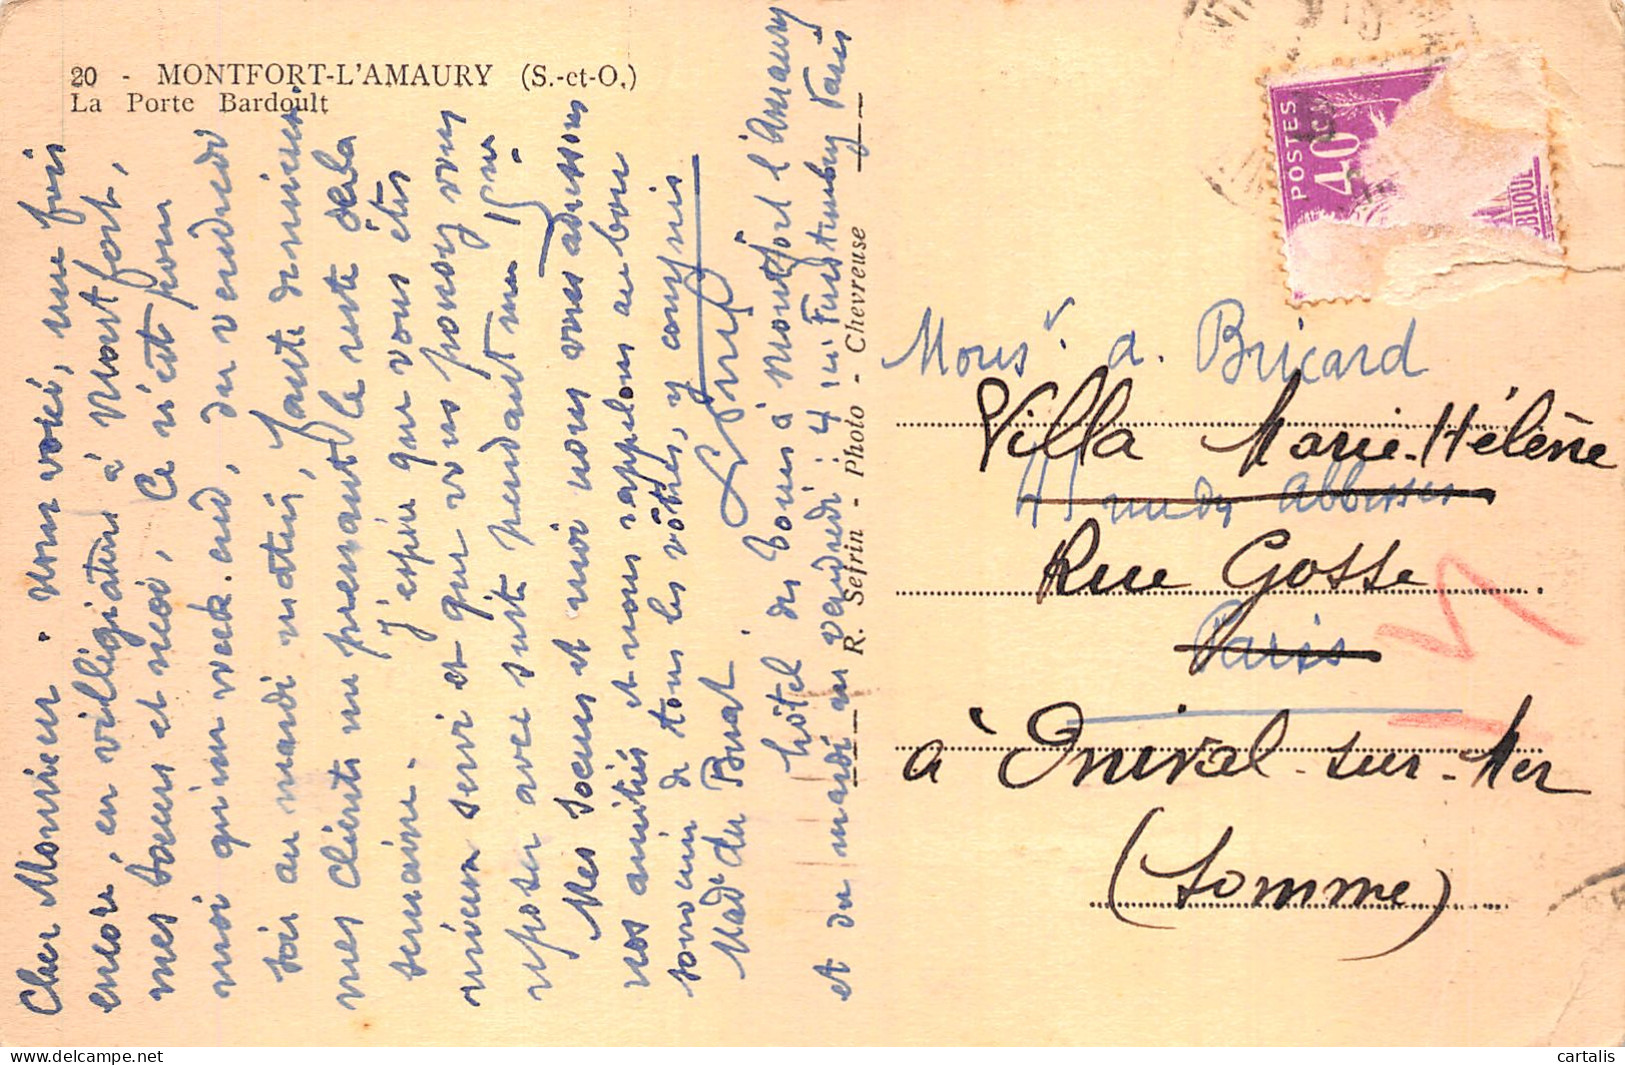 20 - MONTFORT-L'AMAURY (S.-et-O.)
La Porte Bardoult
Cher Monsieur. Nous voici, une fois
encore, en villégiature à Montfort,
mes soeurs et moi, Ce n'est pour
moi qu'un week-end, du vendredi
soir au mardi matin,
mes clients me prenant le reste de la
semaine.
J'espère que vous êtes
mieux servi et que vous pouvez vous
reposer avec suite pendant un
Mes soeurs et moi nous vous adressons
nos amitiés et nous rappelons au bon
souvenir de tous les vôtres, y compris
Mad. du Buat.
hôtel des Tours à Montfort l'Amaury
et du mardi au vendredi : 4 Furstemberg Paris
R. Sefrin - Photo - Chevreuse
POSTES
40c
BLIQUE
Monsr. A. Bricard
Villa Marie-Hélène
45 rue des Abbesses
Rue Gosse
Paris
à Onival-sur-Mer
(Somme)
cartalis